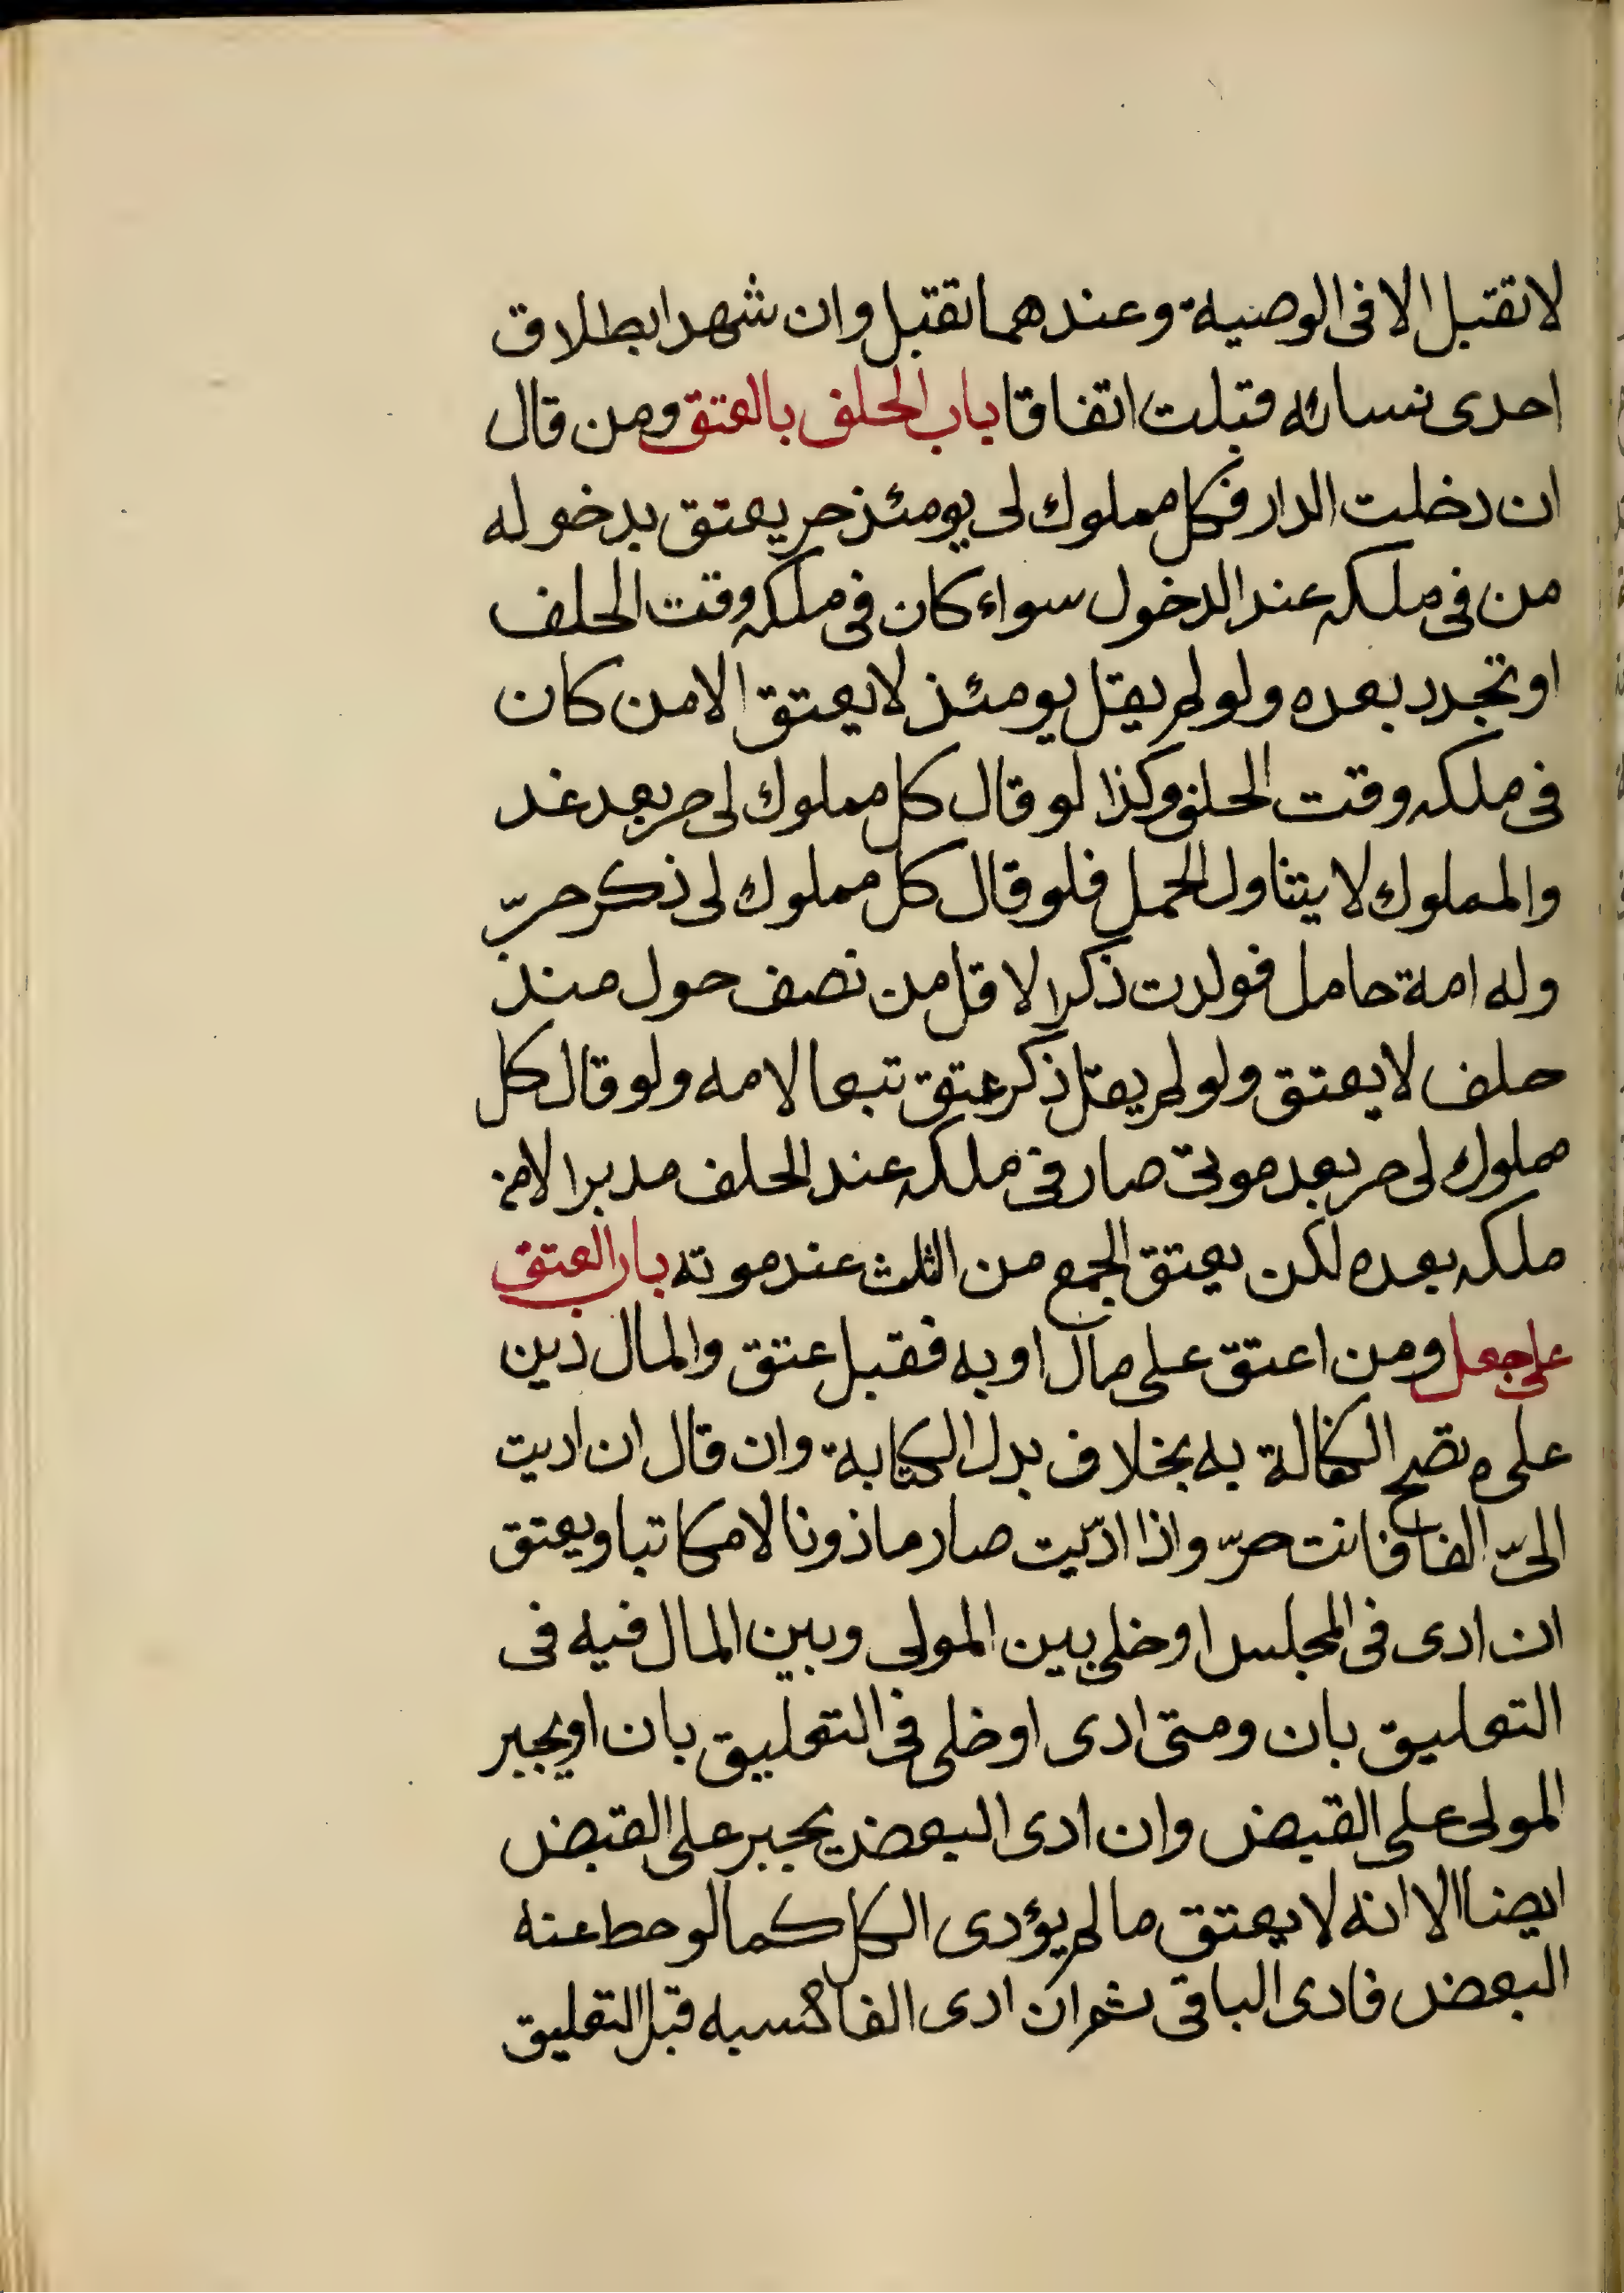 لا تقبل الا فى الوصية وعندهما تقبل وان شهدا بطلاق
احدى نسائه قبلت اتفاقا باب الحلف بالعتق ومن قال
ان دخلت الدار فكل مملوك لى يومئذ حر يعتق بدخوله
من فى ملكه عند الدخول سواء كان فى ملكه وقت الحلف
او تجدد بعده ولو لم يقل يومئذ لا يعتق الا من كان
فى ملكه وقت الحلف وكذا لو قال كل مملوك لى حر بعد غد
والمملوك لا يتناول الحمل فلو قال كل مملوك لى ذكر حرّ
وله امة حامل فولدت ذكرا لاقل من نصف حول منذ
حلف لا يعتق ولو لم يقل ذكر عتق تبعا لامه ولو قال كل
مملوك لى حر بعد موتى صار فى ملكه عند الحلف مدبرا لا من
ملكه بعده لكن يعتق الجمع من الثلث عند موته باب العتق
على جعل ومن اعتق على مال او به فقبل عتق والمال دين
عليه تصح الكفالة به بخلاف بدل الكتابة وان قال ان اديت
الىّ الفا فانت حرّ واذا ادّيت صار ماذونا لا مكاتبا ويعتق
ان ادى فى المجلس او خلى بين المولى وبين المال فيه فى
التعليق بان ومتى ادى او خلى فى التعليق بان او يجبر
المولى على القبض وان ادى البعض يجبر على القبض
ايضا الا انه لا يعتق ما لم يؤدى الكل كما لو حط عنه
البعض فادى الباقى ثم ان ادى الفا كسبه قبل التعليق